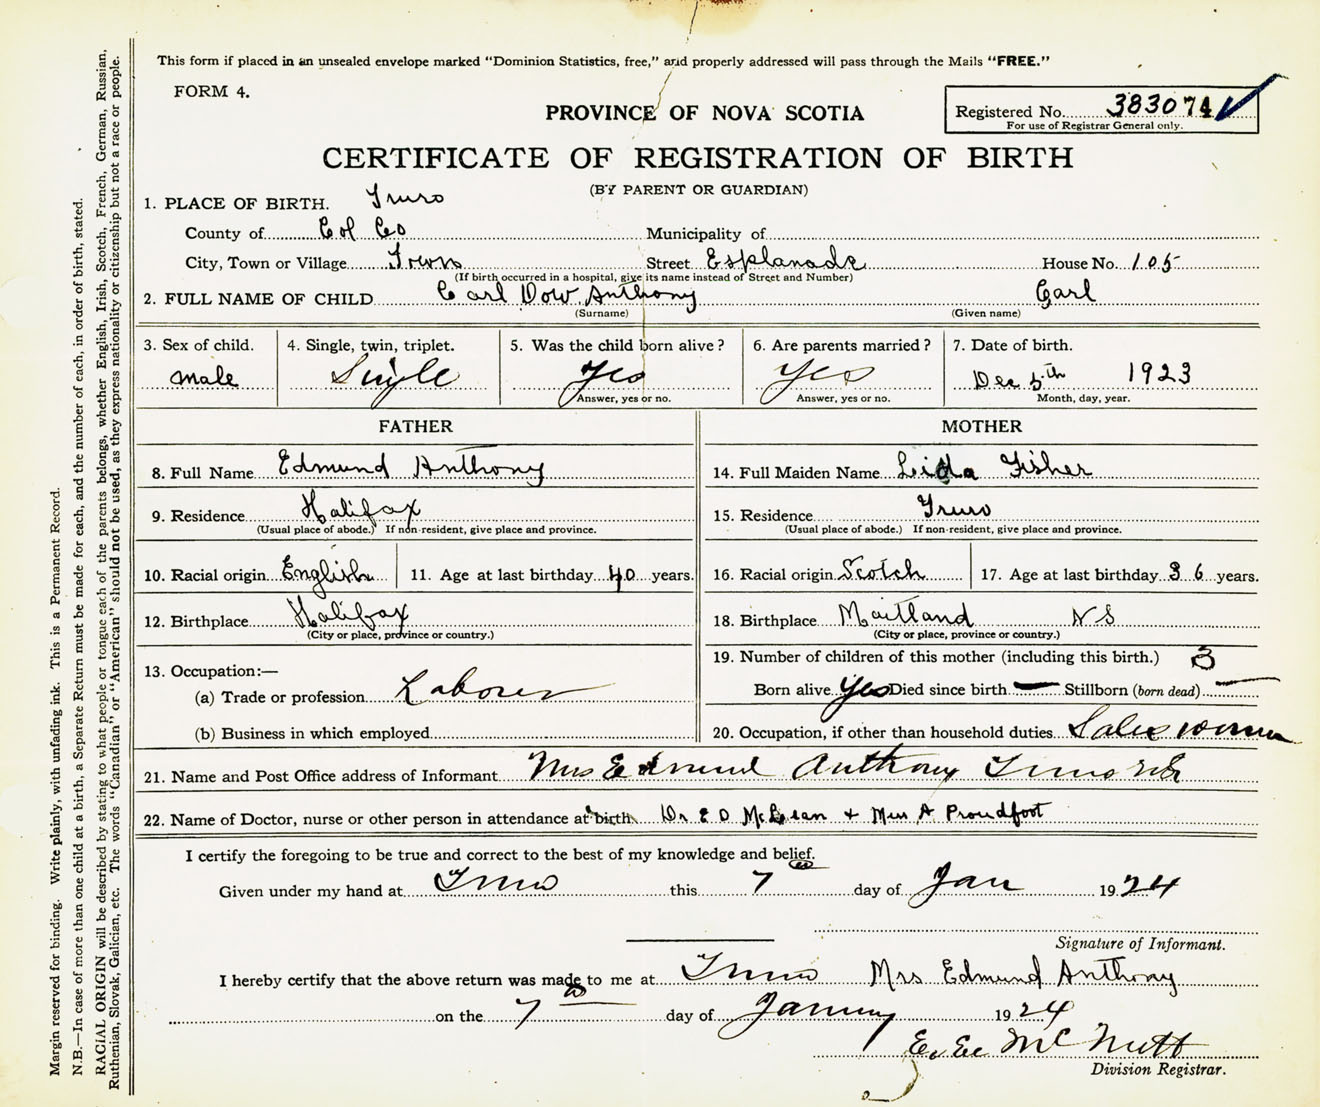 This form if placed in an unsealed envelope marked "Dominion Statistics, free," and properly addressed will pass through the Mails "FREE."
FORM 4.
PROVINCE OF NOVA SCOTIA
Registered No. 383074
For use of Registrar General only.
CERTIFICATE OF REGISTRATION OF BIRTH
(BY PARENT OR GUARDIAN)
1. PLACE OF BIRTH. Truro
County of Col Co Municipality of
City, Town or Village Town Street Esplanade House No. 105
(If birth occurred in a hospital, give its name instead of Street and Number)
2. FULL NAME OF CHILD Carl Dow Anthony Carl
(Surname) (Given name)
3. Sex of child. 4. Single, twin, triplet. 5. Was the child born alive? 6. Are parents married? 7. Date of birth.
male Single Yes Yes Dec 5th 1923
Answer, yes or no. Answer, yes or no. Month, day, year.
FATHER MOTHER
8. Full Name Edmund Anthony 14. Full Maiden Name Lida Fisher
9. Residence Halifax 15. Residence Truro
(Usual place of abode.) If non-resident, give place and province. (Usual place of abode.) If non-resident, give place and province.
10. Racial origin English 11. Age at last birthday 40 years. 16. Racial origin Scotch 17. Age at last birthday 36 years.
12. Birthplace Halifax 18. Birthplace Maitland NS
(City or place, province or country.) (City or place, province or country.)
13. Occupation:— 19. Number of children of this mother (including this birth.) 3
(a) Trade or profession Laborer Born alive Yes Died since birth — Stillborn (born dead) —
(b) Business in which employed 20. Occupation, if other than household duties Sales woman
21. Name and Post Office address of Informant Mrs Edmund Anthony Truro
22. Name of Doctor, nurse or other person in attendance at birth Dr E D McLean + Miss A Proudfoot
I certify the foregoing to be true and correct to the best of my knowledge and belief.
Given under my hand at Truro this 7 day of Jan 1924
Signature of Informant.
I hereby certify that the above return was made to me at Truro Mrs Edmund Anthony
on the 7 day of January 1924
McNutt
Division Registrar.
Margin reserved for binding. Write plainly, with unfading ink. This is a Permanent Record.
N.B.—In case of more than one child at a birth, a Separate Return must be made for each, and the number of each, in order of birth, stated.
RACIAL ORIGIN will be described by stating to what people or tongue each of the parents belongs, whether English, Irish, Scotch, French, German, Russian,
Ruthenian, Slovak, Galician, etc. The words "Canadian" or "American" should not be used, as they express nationality or citizenship but not a race or people.